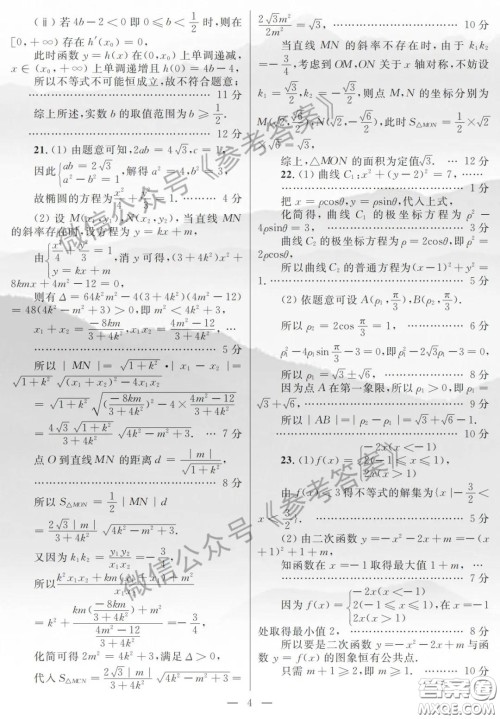 (ⅱ)若4b-2<0即0≤b<1/2时,则在
[0,+∞)存在h′(x₀)=0,
此时函数y=h(x)在[0,x₀)上单调递减,
x∈(x₀,+∞)上单调递增且h(0)=4b-4,
所以不等式不可能恒成立,故不符合题意;
11分
综上所述,实数b的取值范围为b≥1/2.
12分
21.(1)由题意可知,2ab=4√3,c=1,
因此{ab=2√3 a²-b²=1,解得{a²=4 b²=3.
故椭圆的方程为x²/4+y²/3=1. 4分
(2)设M(x₁,y₁),N(x₂,y₂),当直线MN
的斜率存在时,设方程为y=kx+m
由{x²/4+y²/3=1 y=kx+m,消y可得,(3+4k²)x²+
8kmx+4m²-12=0
则有Δ=64k²m²-4(3+4k²)(4m²-12)
=48(4k²-m²+3)>0,即m²<4k²+3,
x₁+x₂=-8km/(3+4k²),x₁x₂=(4m²-12)/(3+4k²).
5分
所以|MN|=√(1+k²)|x₁-x₂|
=√(1+k²)√((x₁+x₂)²-4x₁x₂)
=√(1+k²)√((-8km/(3+4k²))²-4×(4m²-12)/(3+4k²))
=(4√3√(1+k²)/(3+4k²))√(4k²-m²+3). 7分
点O到直线MN的距离d=|m|/√(1+k²)
8分
所以S△MON=1/2|MN|d
=(2√3|m|/(3+4k²))√(4k²-m²+3).
又因为k₁k₂=y₁y₂/x₁x₂=-3/4,
所以(k²x₁x₂+km(x₁+x₂)+m²)/x₁x₂
=k²+(km(-8km/(3+4k²))+m²)/((4m²-12)/(3+4k²))=-3/4,
化简可得2m²=4k²+3,满足Δ>0,
代入S△MON=(2√3|m|/(3+4k²))√(4k²-m²+3)=
2√3m²/2m²=√3. 10分
当直线MN的斜率不存在时,由于k₁k₂=
-3/4,考虑到OM,ON关于x轴对称,不妨设
k₁=√3/2,k₂=-√3/2,则点M,N的坐标分别为
M(√2,√6/2),N(√2,-√6/2),此时S△MON=1/2×√2
×√6=√3,
综上,△MON的面积为定值√3. 12分
22.(1)曲线C₁:x²+(y-2)²=7,
1分
把x=ρcosθ,y=ρsinθ,代入上式,
化简得,曲线C₁的极坐标方程为ρ²-
4ρsinθ=3. 2分
曲线C₂的极坐标方程为ρ=2cosθ,即ρ²=
2ρcosθ.
所以曲线C₂的普通方程为(x-1)²+y²=
1. 5分
(2)依题意可设A(ρ₁,π/3),B(ρ₂,π/3).
所以ρ₂=2cosπ/3=1. 6分
ρ₁²-4ρ₁sinπ/3=3,即ρ₁²-2√3ρ₁-3=0.
所以ρ₁=√3±√6. 8分
因为点A在第一象限,所以ρ₁>0,即ρ₁=
√3+√6. 9分
所以|AB|=|ρ₂-ρ₁|=√3+√6-1.
10分
23.(1)f(x)={-2x(x<-1) 2(-1≤x≤1), 2x(x>1)
由f(x)≤3得不等式的解集为{x|-3/2
<x≤3/2}. 5分
(2)由二次函数y=-x²-2x+m=
-(x+1)²+1+m,
知函数在x=-1取得最大值m+1,
7分
因为f(x)={-2x(x<-1) 2(-1≤x≤1),在x=-1 2x(x>1)
处取得最小值2, 8分
所以要是二次函数y=-x²-2x+m与函
数y=f(x)的图象恒有公共点.
只需m+1≥2,即m≥1. 10分
— 4 —
微信公众号《参考答案》
微信公众号《参考答案》